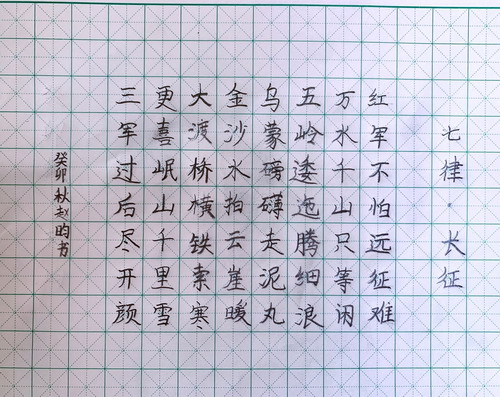 七律·长征
红军不怕远征难
万水千山只等闲
五岭逶迤腾细浪
乌蒙磅礴走泥丸
金沙水拍云崖暖
大渡桥横铁索寒
更喜岷山千里雪
三军过后尽开颜
癸卯秋赵昀书